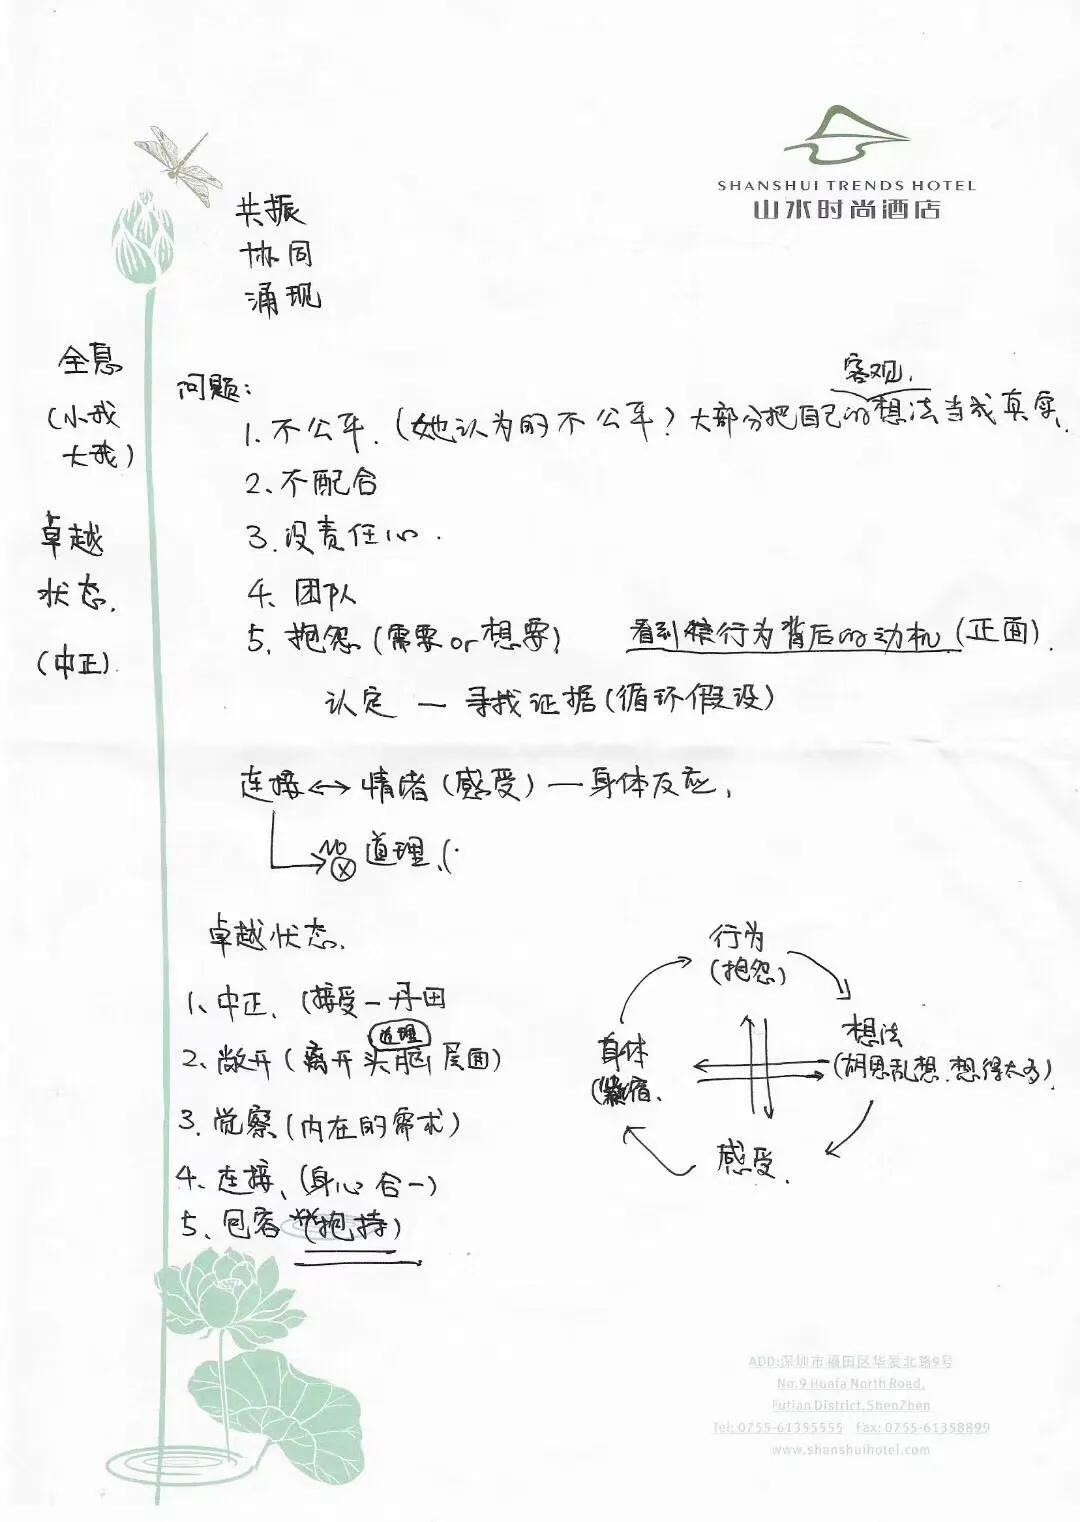 SHANSHUI TRENDS HOTEL
山水时尚酒店
共振
协同
涌现
全息
(小我
大我)
卓越
状态.
(中正).
问题:
客观.
1. 不公平. (她认为的不公平? 大部分把自己的想法当成真实.
2、不配合
3. 没责任心.
4、团队
5、抱怨 (需要or想要) 看到 行为背后的动机 (正面).
认定 — 寻找证据(循环假设)
连接 ↔ 情绪 (感受) — 身体反应,
NO ⓧ 道理、(
卓越状态.
1、中正、(接受 — 丹田
道理
2、敞开 (离开头脑层面)
3. 觉察 (内在的需求)
4、连接、(身心合一)
5、包容 (抱持)
行为
(抱怨)
想法
(胡思乱想. 想得太多)
感受.
身体
ADD:深圳市福田区华发北路9号
No.9 Huafa North Road,
Futian District, ShenZhen
Tel: 0755-61355555 Fax: 0755-61358899
www.shanshuihotel.com